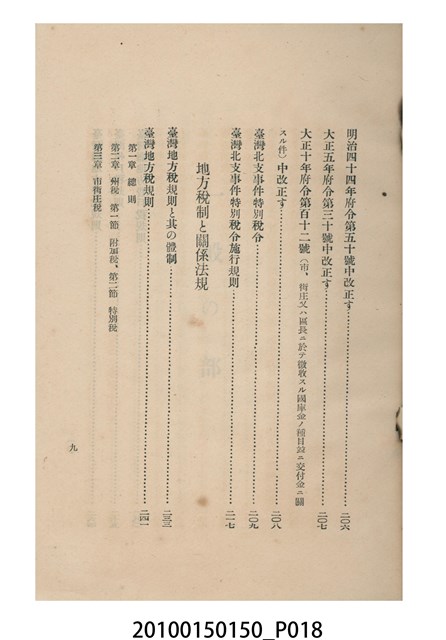 明治四十四年府令第五十號中改正す……二〇六
大正五年府令第三十號中改正す……二〇七
大正十年府令第百十二號（市、街庄又ハ區長ニ於テ徵收スル國庫金ノ種目竝ニ交付金ニ關
スル件）中改正す……二〇八
臺灣北支事件特別稅令……二〇九
臺灣北支事件特別稅令施行規則……二一七
地方稅制と關係法規
臺灣地方稅規則と其の體制……二三三
臺灣地方稅規則……二四一
第一章 總則
第二章 州稅 第一節 附加稅、第二節 特別稅
第三章 市街庄稅
九
20100150150_P018